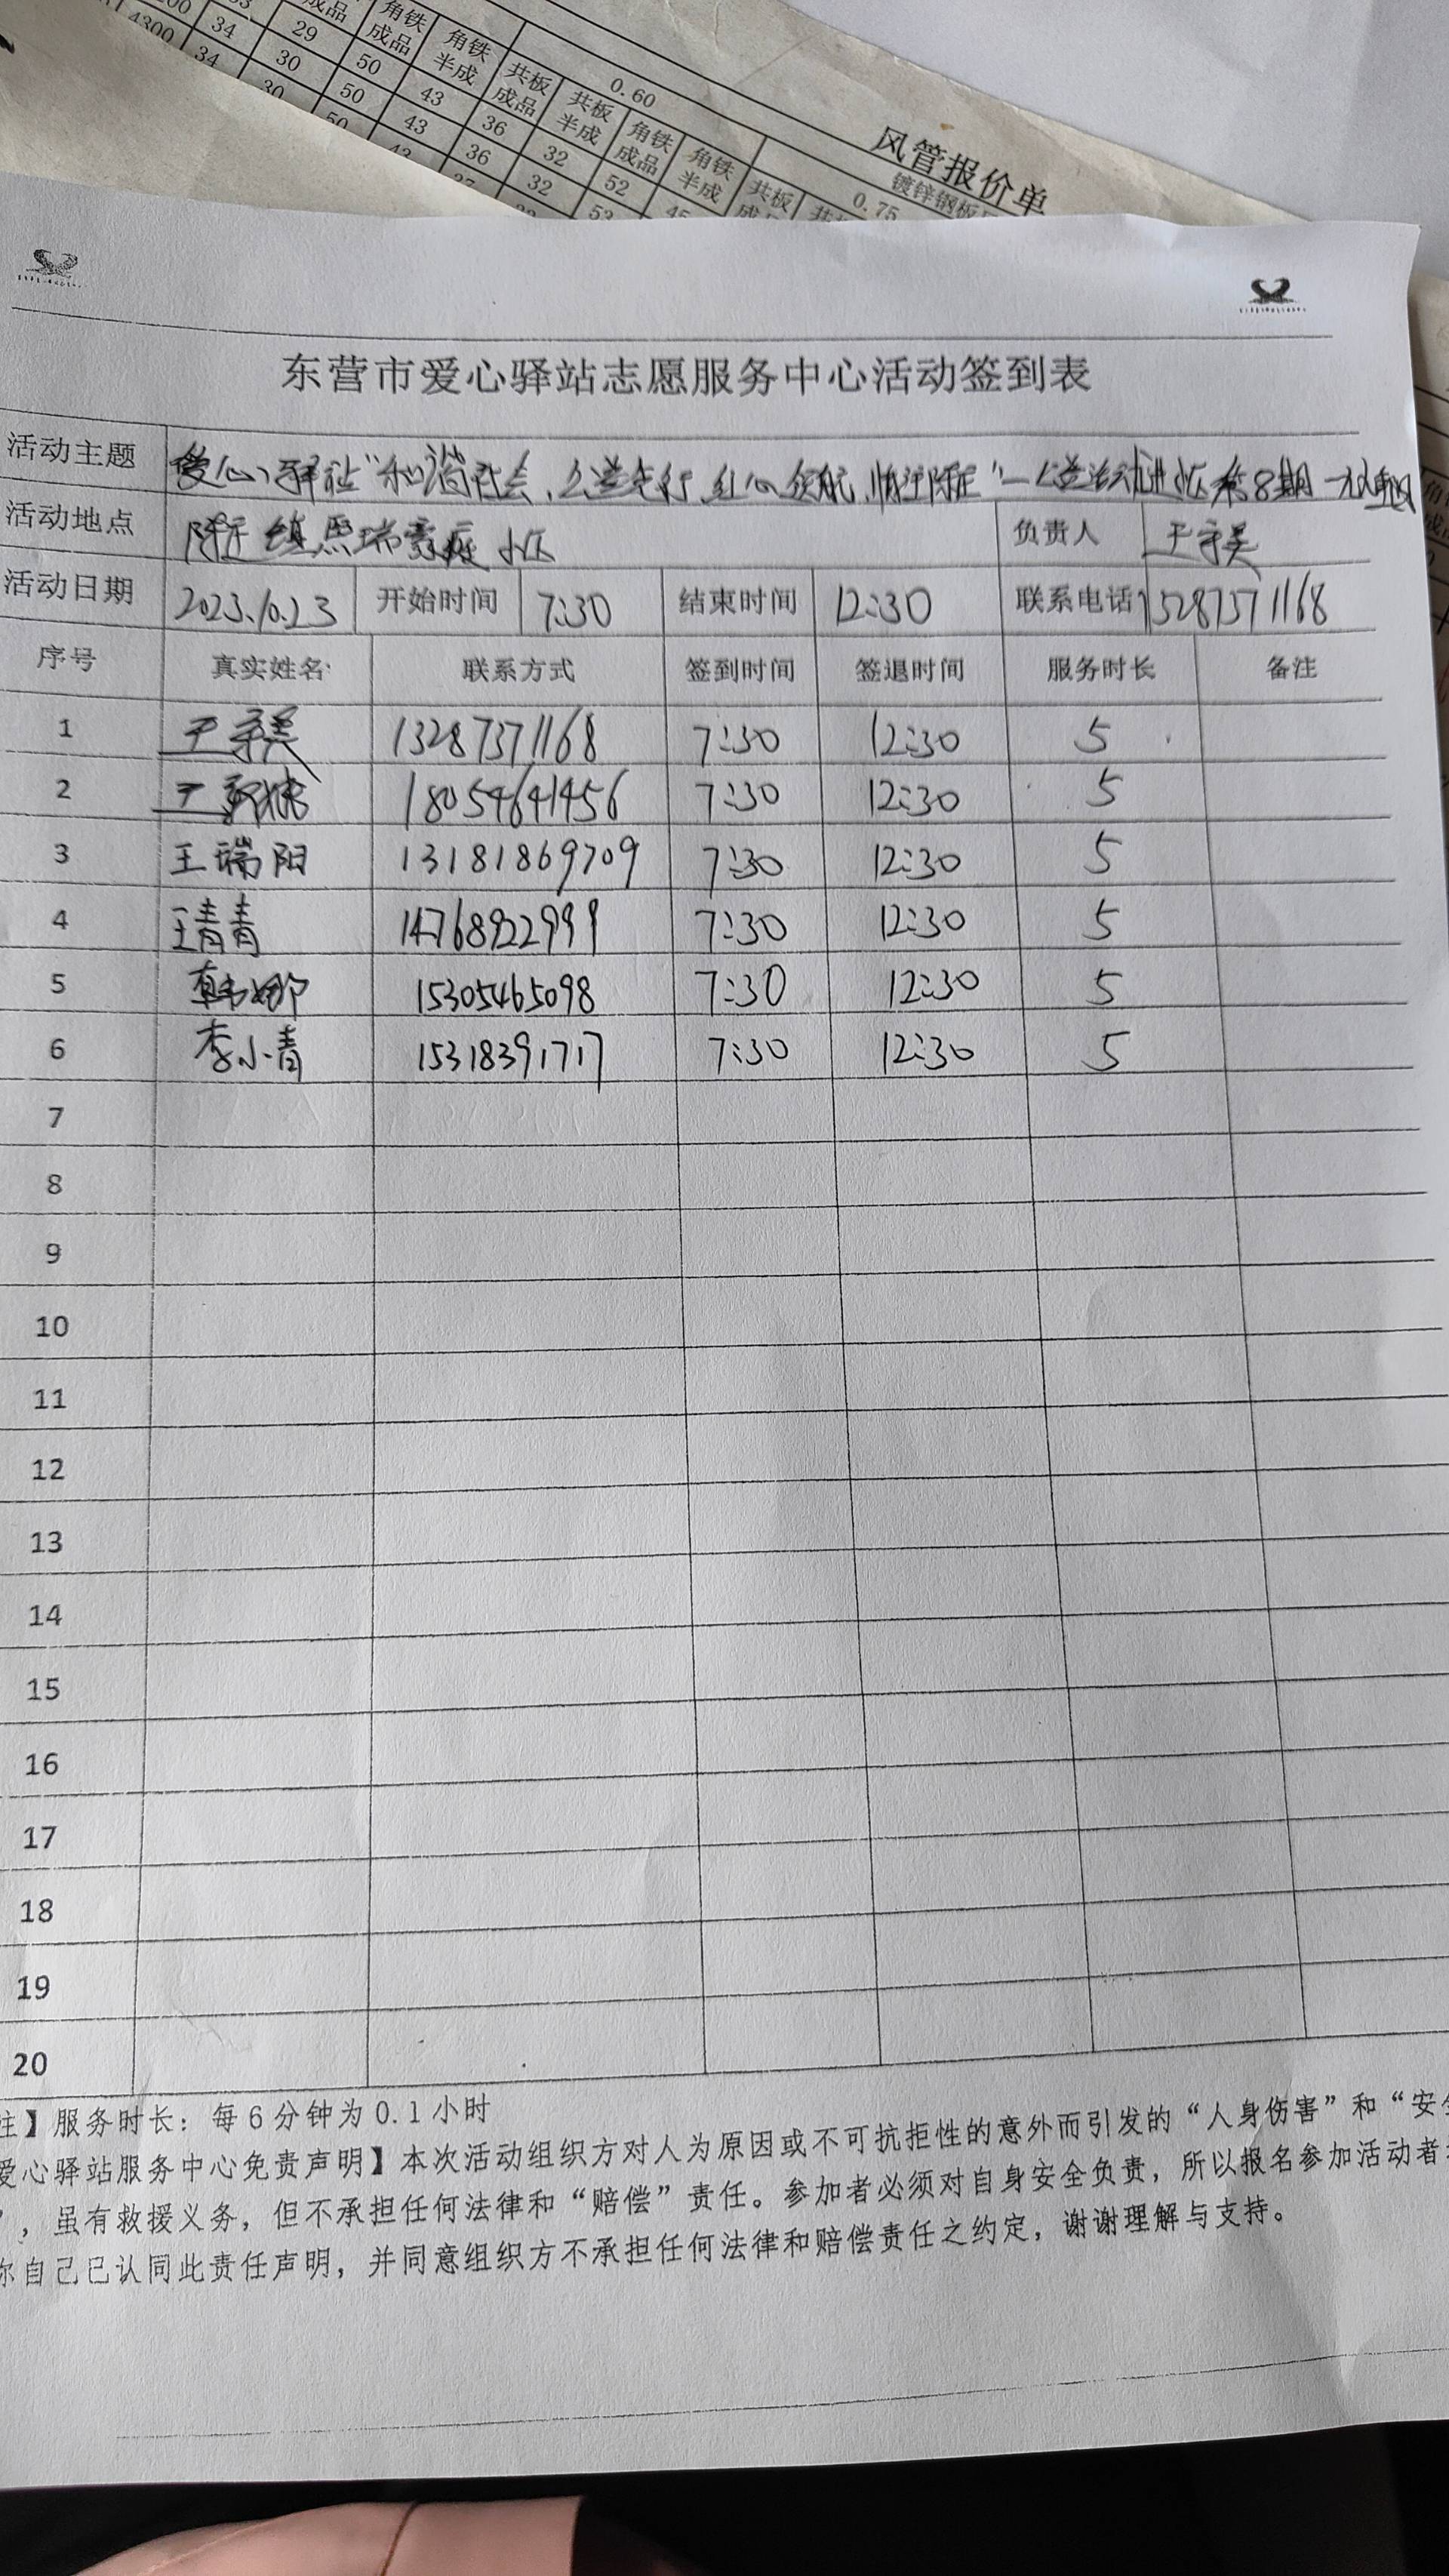 4300 34 29 50 43 36 32 52 45
34 30 50 43 36 32 53
30 50
成品 角铁成品 角铁半成 共板成品 共板半成 角铁成品 角铁半成 共板
0.60
0.75
风管报价单
镀锌钢板
东营市爱心驿站志愿服务中心活动签到表
活动主题 爱心驿站"和谐社会、公益先行、红心领航、情注陈庄"—公益活动进社区第8期
活动地点 陈庄镇恩瑞豪庭小区 负责人
活动日期 2023.10.23 开始时间 7:30 结束时间 12:30 联系电话 15287371168
序号 真实姓名 联系方式 签到时间 签退时间 服务时长 备注
1 13287371168 7:30 12:30 5
2 18054641456 7:30 12:30 5
3 王瑞阳 13181869709 7:30 12:30 5
4 王青青 14768922999 7:30 12:30 5
5 韩娜 15305465098 7:30 12:30 5
6 李小青 15318391717 7:30 12:30 5
7
8
9
10
11
12
13
14
15
16
17
18
19
20
注】服务时长：每6分钟为0.1小时
爱心驿站服务中心免责声明】本次活动组织方对人为原因或不可抗拒性的意外而引发的“人身伤害”和“安全
”，虽有救援义务，但不承担任何法律和“赔偿”责任。参加者必须对自身安全负责，所以报名参加活动者
你自己已认同此责任声明，并同意组织方不承担任何法律和赔偿责任之约定，谢谢理解与支持。